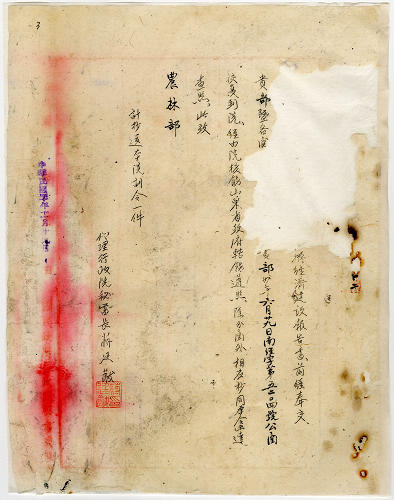 經濟建設報告書前經奉交
貴部暨各
部
六月廿九日南經字第五二〇四號公函
到院。經由院核飭山東省政府轉飭遵照。除分函外相應抄同原令函達
查照。此致
農林部
計抄送本院訓令一件
代理行政院秘書長蔣廷黻
中華民國 年七月十
3